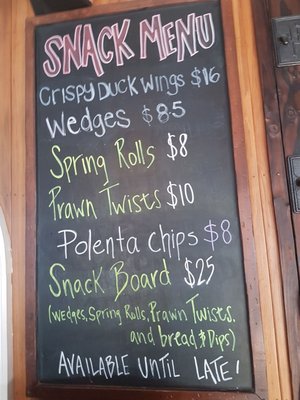 SNACK MENU
CRISPY DUCK WINGS $16
Wedges $8.5
Spring Rolls $8
Prawn Twists $10
Polenta chips $8
Snack Board $25
(wedges, Spring Rolls, Prawn Twists,
and bread, & Dips)
AVAILABLE UNTIL LATE!